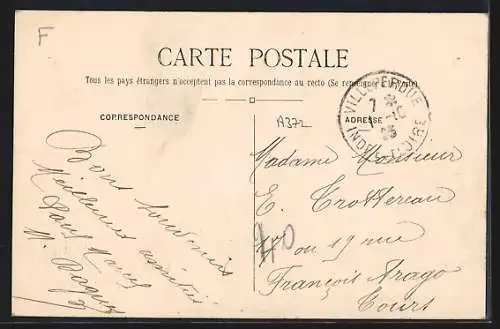 F
CARTE POSTALE
Tous les pays étrangers n'acceptent pas la correspondance au recto (Se renseigner à la Poste)
CORRESPONDANCE
A372
ADRESSE
VILLEPERDUE
7
INDRE-ET-LOIRE
Bons souvenirs
Meilleures amitiés
Madame Monsieur
E. Trottereau
17 ou 19 rue
François Arago
Tours
40